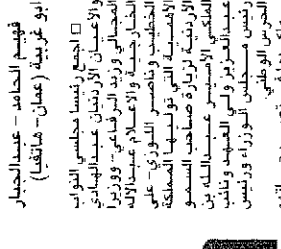 فهيم الحامد - عبدالجبار
ابو غربية (عمان - هاتفيا)
□ اجمع رئيسا مجلسي النواب
والأعيان الأردنيان عبدالهادي
المجالي وزيد الرفاعي - ووزيرا
الخارجية والاعلام عبدالاله
الخطيب وناصر اللوزي - على
الأهمية التي توليها المملكة
الأردنية لزيارة صاحب السمو
الملكي الأمير عبدالله بن
عبدالعزيز ولي العهد ونائب
رئيس مجلس الوزراء ورئيس
الحرس الوطني